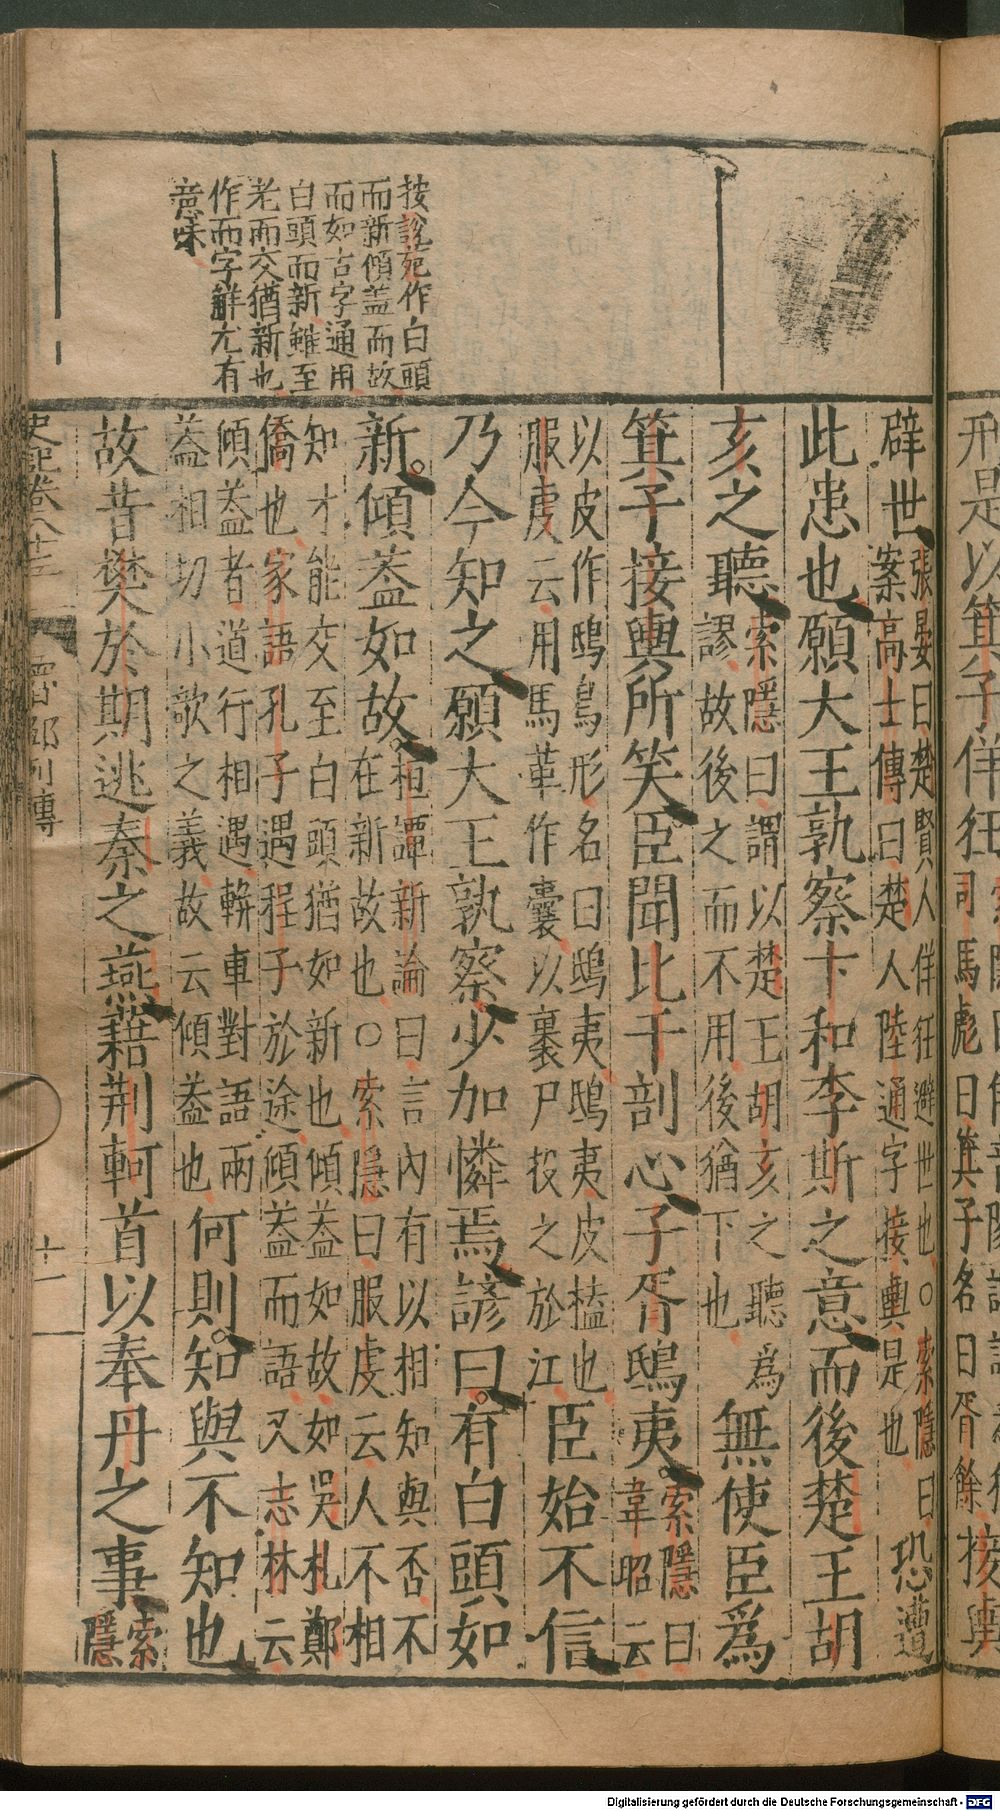 刑是以箕子佯狂
司馬彪曰箕子名曰胥餘
接輿
按說苑作白頭
而新傾盖而故
而如古字通用
白頭而新雖至
老而交猶新也
作而字解尤有
意味
辟世
張晏曰楚賢人佯狂避世也〇索隱曰
案高士傳曰楚人陸通字接輿是也
恐遭
此患也願大王孰察卞和李斯之意而後楚王胡
亥之聽
索隱曰謂以楚王胡亥之聽爲
謬故後之而不用後猶下也
無使臣爲
箕子接輿所笑臣聞比干剖心子胥鴟夷
索隱曰
韋昭云
以皮作鴟鳥形名曰鴟夷鴟夷皮榼也
服虔云用馬革作囊以裹尸投之於江
臣始不信
乃今知之願大王孰察少加憐焉諺曰有白頭如
新傾蓋如故
桓譚新論曰言內有以相知與否不
在新故也〇索隱曰服虔云人不相
知才能交至白頭猶如新也傾蓋如故如吳札鄭
僑也家語孔子遇程子於途傾蓋而語又志林云
傾蓋者道行相遇軿車對語兩
蓋相切小欹之義故云傾蓋也
何則知與不知也
故昔樊於期逃秦之燕藉荆軻首以奉丹之事
索
隱
史記卷八十三
鄒列傳
十一
Digitalisierung gefördert durch die Deutsche Forschungsgemeinschaft - DFG